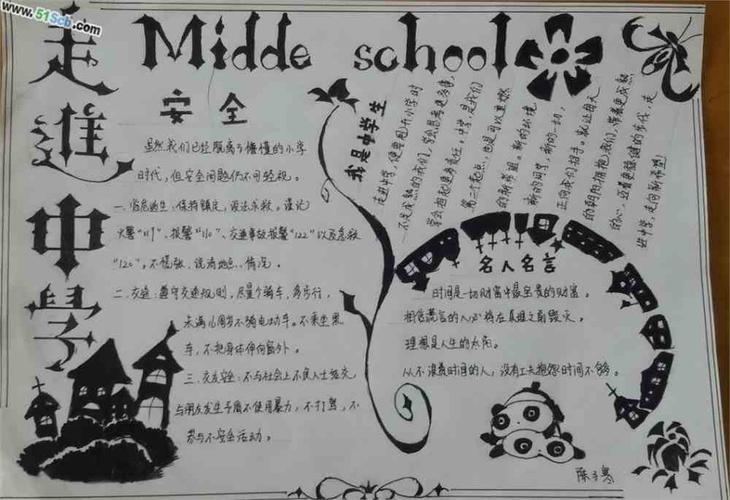 www.51Scb.com
走进中学
Midde school
安全
虽然我们已经脱离了懵懂的小学
时代，但安全问题仍不可轻视。
一、当危险生、保持镇定，设法求救。谨记
火警“119”、报警“110”、交通事故报警“122”以及急救
“120”，不慌张，说清地点、情况。
二、交通：遵守交通规则，尽量少骑车，多步行，
未满16周岁不骑电动车。不乘坐黑
车，不把身体伸向窗外。
三、交友安全：不与社会上不良人士结交
与朋友发生矛盾不使用暴力，不打骂，不
参与不安全活动。
我是中学生
走进中学，便要告别小学时
不是成熟的我们，学会思考更多事，
学会担起更多责任。中学，是我们
第二个起点，也是可以真燃
的新希望。新的环境
新的同学，新的一切，
正向我们招手。就让每天
的朝阳拥抱我们，带着更成熟
的心，迈着更稳健的步伐，走
进中学，走向新希望！
名人名言
时间是一切财富中最宝贵的财富。
相信谎言的人必将在真理之前毁灭。
理想是人生的太阳。
从不浪费时间的人，没有工夫抱怨时间不够。